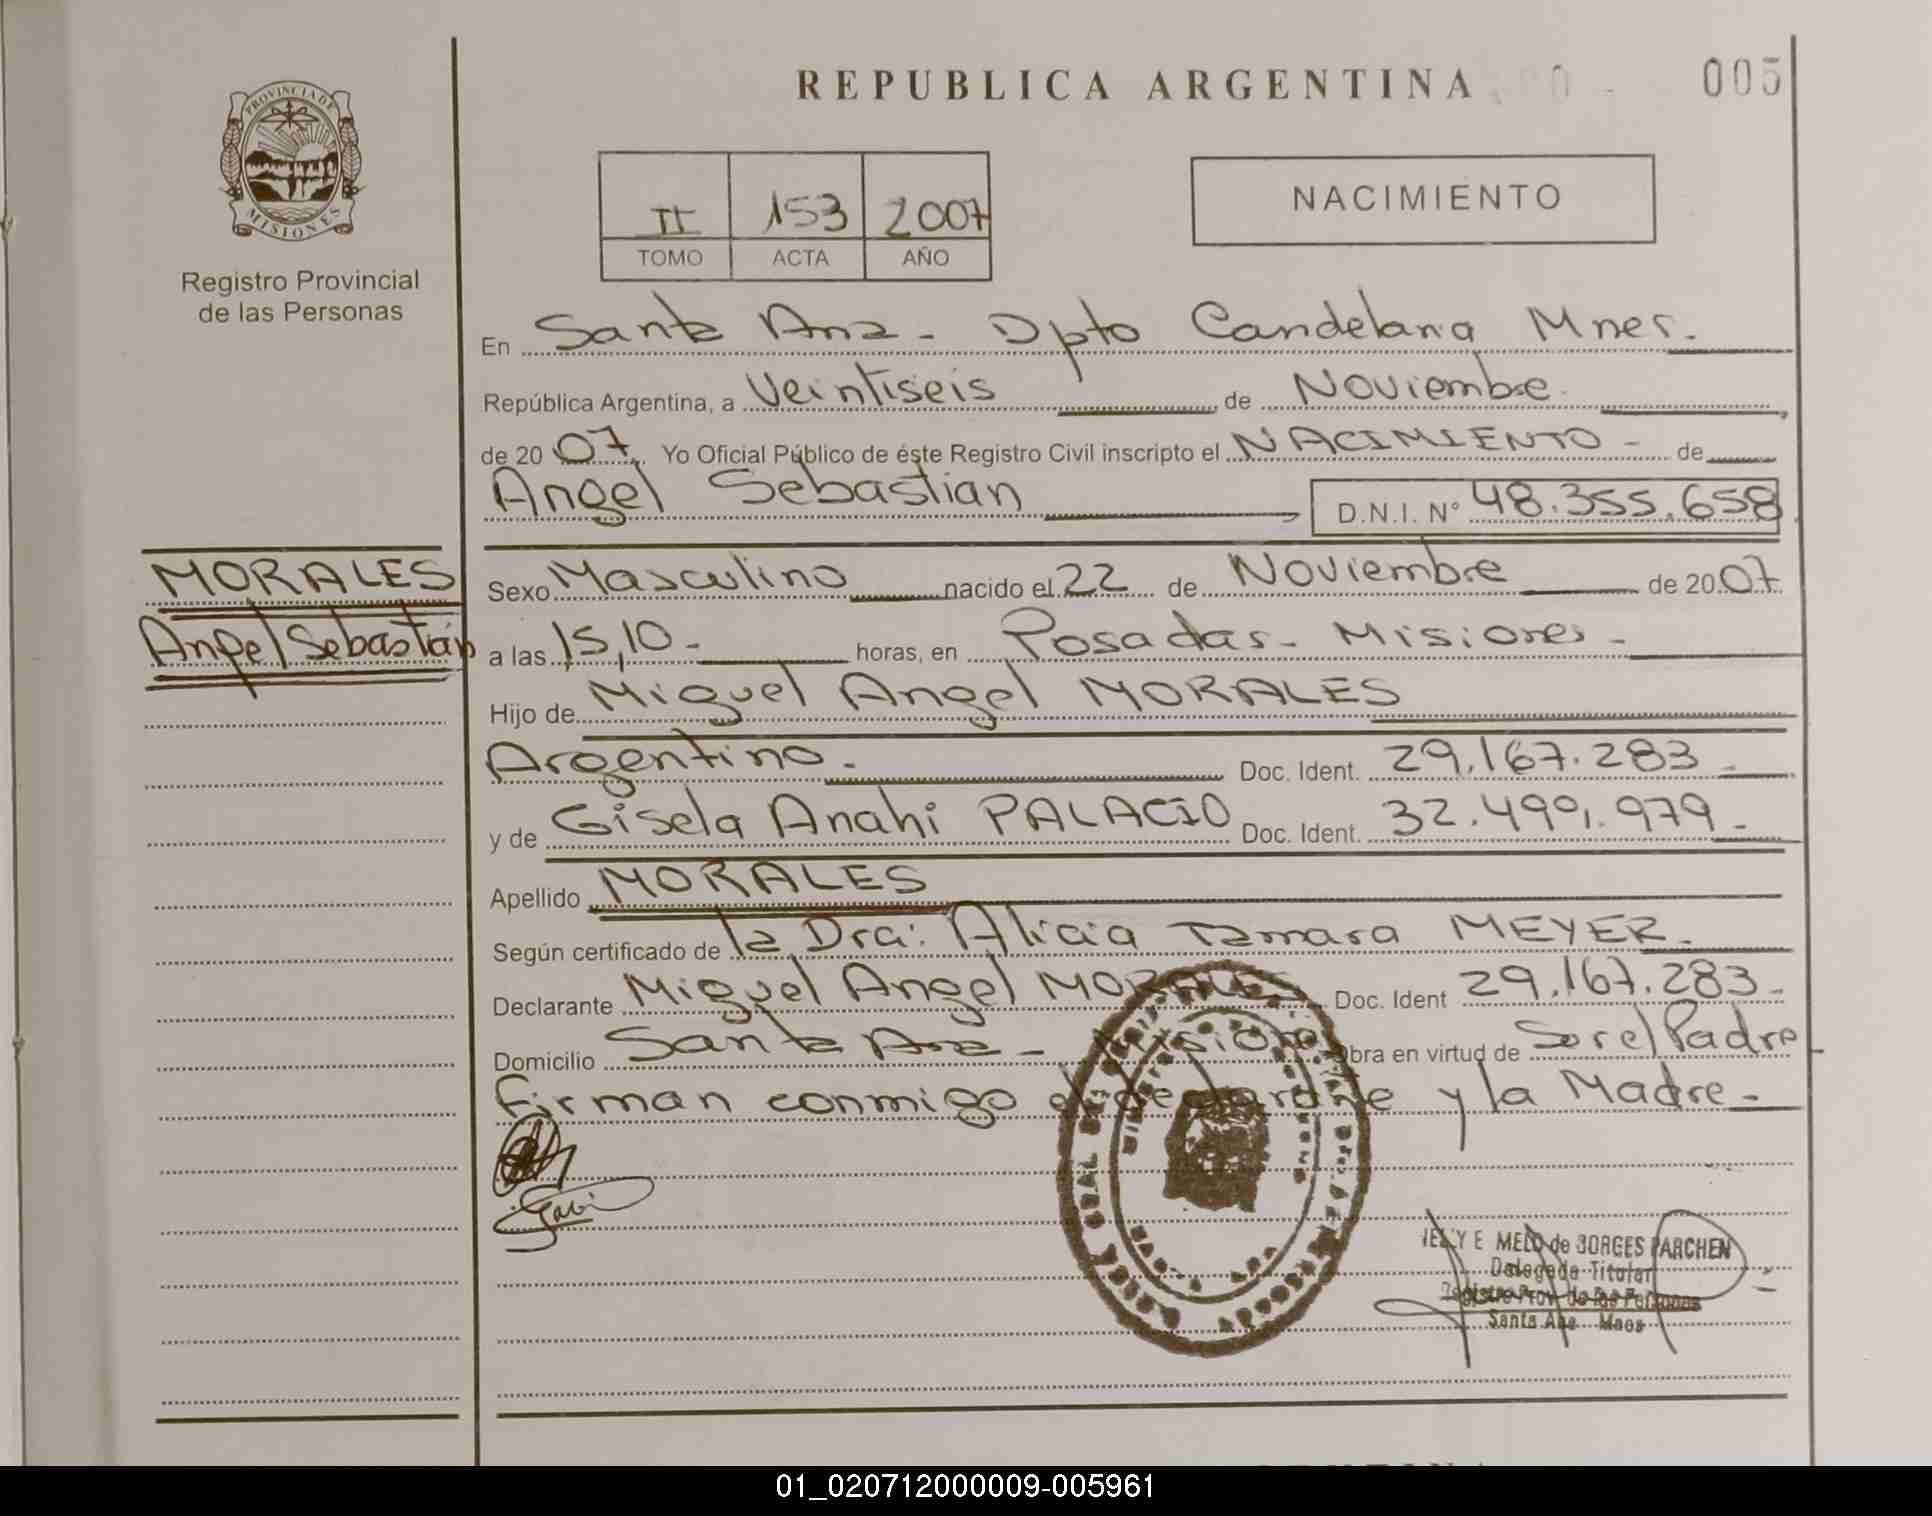 REPUBLICA ARGENTINA
005
PROVINCIA DE
MISIONES
Registro Provincial
de las Personas
II 153 2007
TOMO ACTA AÑO
NACIMIENTO
En Santa Ana - Dpto Candelaria Mnes.
República Argentina, a Veintiseis de Noviembre
de 20 07. Yo Oficial Público de éste Registro Civil inscripto el NACIMIENTO - de
Angel Sebastian D.N.I. N° 48.355.658
MORALES
Angel Sebastián
Sexo Masculino nacido el 22 de Noviembre de 20 07
a las 15,10 - horas, en Posadas - Misiones -
Hijo de Miguel Angel MORALES
Argentino. Doc. Ident. 29.167.283
y de Gisela Anahi PALACIO Doc. Ident. 32.499.979 -
Apellido MORALES
Según certificado de la Dra: Alicia Tamara MEYER -
Declarante Miguel Angel MORALES Doc. Ident 29.167.283 -
Domicilio Santa Ana - Misiones Obra en virtud de Ser el Padre
Firman conmigo el declarante y la Madre -
MELO de BORGES PARCHEN
Delegada Titular
Registro Prov. de las Personas
Santa Ana Mnes
01_020712000009-005961